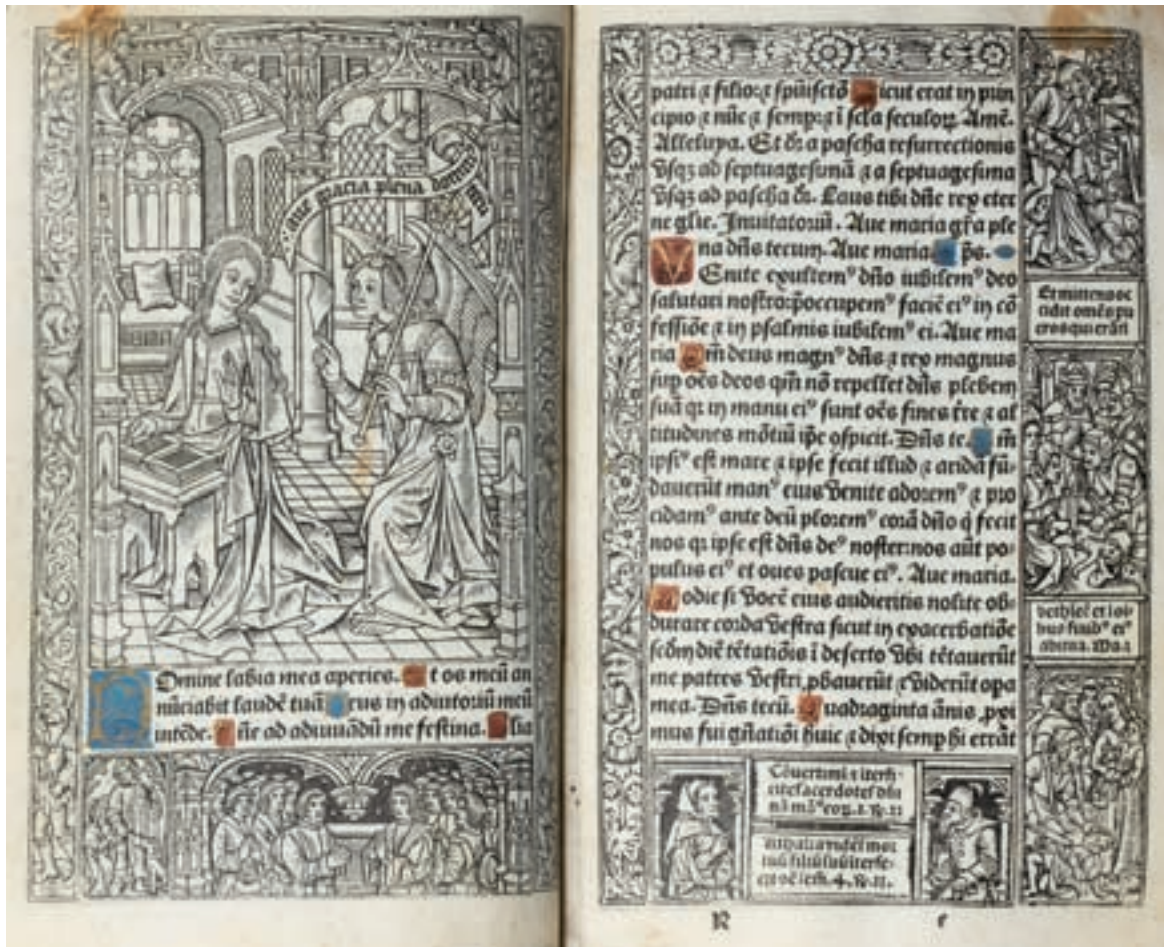 aue gracia plena dominus
Domine labia mea aperies. Et os meū an
nūciabit laudē tuā Deus in adiutoriū meū
intēde. Dn̄e ad adiuuādū me festina. Glia
patri ⁊ filio: ⁊ spūisctō Sicut erat in prin
cipio ⁊ nūc ⁊ semp: ⁊ ī scl̄a seculoꝝ. Amē.
Alleluya. Et dr̄: a pascha resurrectionis
vsqꝫ ad septuagesimā ⁊ a septuagesima
vsqꝫ ad pascha dr̄. Laus tibi dn̄e rex eter
ne glīe. Inuitatoriū. Aue maria gr̄a ple
na dn̄s tecum. Aue maria. ps̄.
VEnite exultemꝰ dn̄o iubilemꝰ deo
salutari nostro: p̄occupemꝰ faciē eiꝰ in cō
fessiōe ⁊ in psalmis iubilemꝰ ei. Aue ma
ria Qm̄ deus magnꝰ dn̄s ⁊ rex magnus
sup oēs deos qm̄ nō repellet dn̄s plebem
suā qꝛ in manu eiꝰ sunt oēs fines tr̄e ⁊ al
titudines mōtiū ip̄e cōspicit. Dn̄s te. Qm̄
ipsiꝰ est mare ⁊ ipse fecit illud ⁊ aridā fū-
dauerūt manꝰ eius venite adoremꝰ ⁊ pro
cidamꝰ ante deū ploremꝰ corā dn̄o q̇ fecit
nos qꝛ ipse est dn̄s deꝰ noster: nos aūt po-
pulus eiꝰ et oues pascue eiꝰ. Aue maria.
Hodie si vocē eius audieritis nolite ob-
durare corda vestra sicut in exacerbatiōe
scd̄m diē tētatiōis ī deserto vbi tētauerūt
me patres vestri, ꝓbauerūt ⁊ viderūt opa
mea. Dn̄s tecū. Quadraginta ānis ꝓxi
mus fui gn̄atiōi huic ⁊ dixi semp hi errāt
Et mittens oc
cidit omēs pu
eros qui erāt
bethleē et ī oī-
bus finibꝰ eiꝰ
Cōuertimī ⁊ īterfi-
cite sacerdotes dn̄i
athalia videns mor
tuū filiū suū īterfe-
R